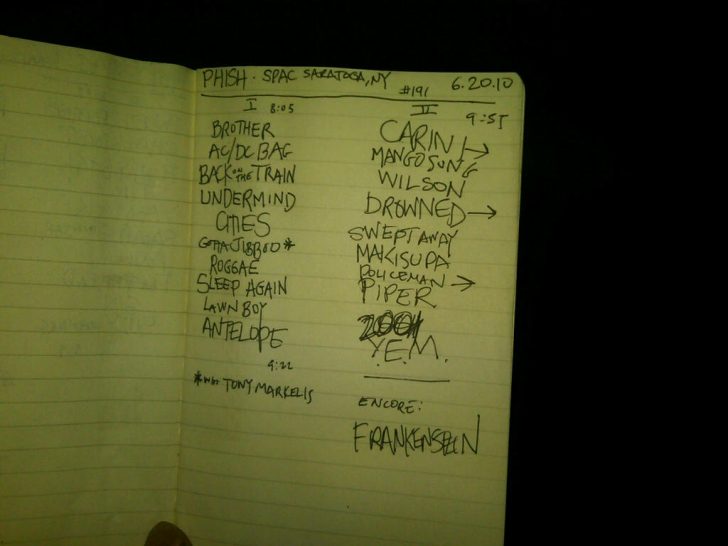 PHISH - SPAC SARATOGA, NY #191 6.20.10
I 8:05
BROTHER
AC/DC BAG
BACK ON THE TRAIN
UNDERMIND
CITIES
GOTTA JIBBOO *
ROGGAE
SLEEP AGAIN
LAWN BOY
ANTELOPE
9:22
* TONY MARKELIS
II 9:55
CARINI →
MANGO SONG
WILSON
DROWNED →
SWEPT AWAY
MAKISUPA
POLICEMAN →
PIPER
2001
Y.E.M.
ENCORE:
FRANKENSTEIN